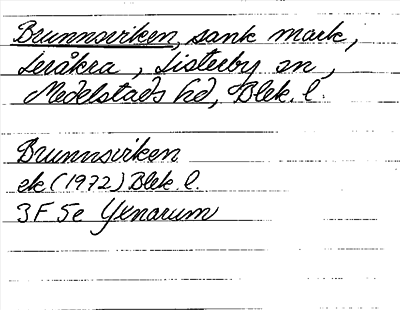 Brunnsviken, sank mark,
Leråkra, Listerby sn,
Medelstads hd, Blek. l.
Brunnsviken
ek (1972) Blek. l.
3F 5e Yxnarum